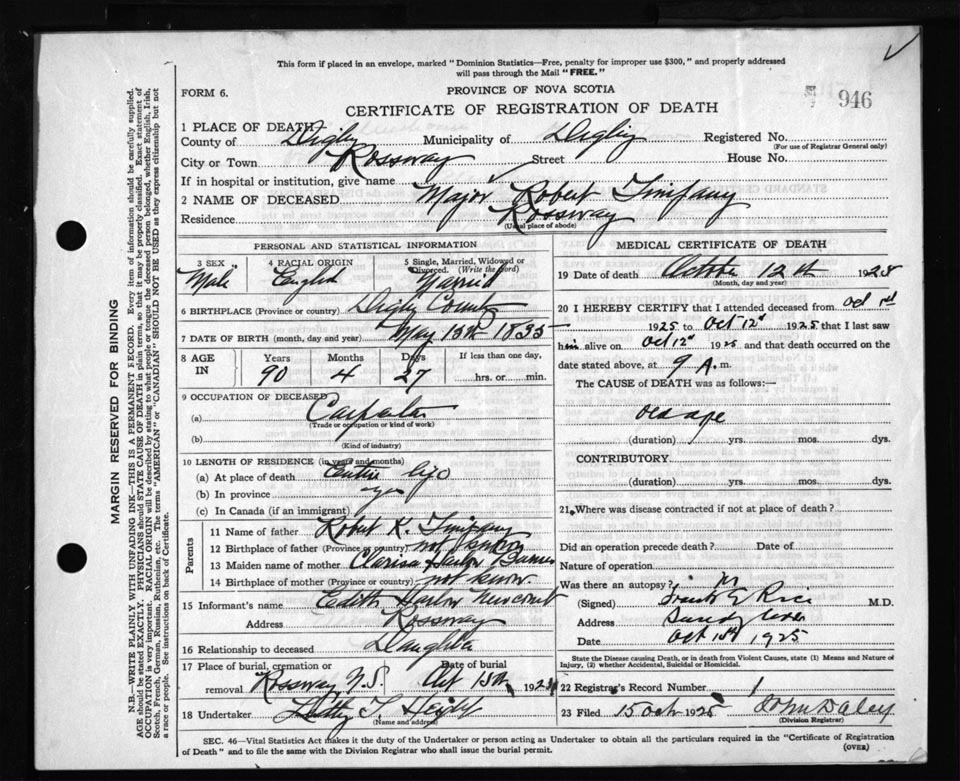 This form if placed in an envelope, marked "Dominion Statistics—Free, penalty for improper use $300," and properly addressed
will pass through the Mail "FREE."
FORM 6.
PROVINCE OF NOVA SCOTIA
946
CERTIFICATE OF REGISTRATION OF DEATH
1 PLACE OF DEATH
County of Digby Municipality of Digby Registered No.
(For use of Registrar General only)
City or Town Rossway Street House No.
If in hospital or institution, give name
2 NAME OF DECEASED Major Robert Timpany
Residence Rossway
(Usual place of abode)
PERSONAL AND STATISTICAL INFORMATION
3 SEX 4 RACIAL ORIGIN 5 Single, Married, Widowed or
Divorced. (Write the word)
Male English Married
6 BIRTHPLACE (Province or country) Digby County
7 DATE OF BIRTH (month, day and year) May 15th 1835
8 AGE IN Years Months Days If less than one day,
90 4 27 hrs. or min.
9 OCCUPATION OF DECEASED
(a) Carpenter
(Trade or occupation or kind of work)
(b)
(Kind of industry)
10 LENGTH OF RESIDENCE (in years and months)
(a) At place of death Entire life
(b) In province
(c) In Canada (if an immigrant)
Parents
11 Name of father Robert K. Timpany
12 Birthplace of father (Province or country) not known
13 Maiden name of mother Clarisa
14 Birthplace of mother (Province or country) not know
15 Informant's name Edith Harlow
Address Rossway
16 Relationship to deceased Daughter
17 Place of burial, cremation or Date of burial
removal Rossway N.S. Oct 15th, 192
18 Undertaker
(Name and address)
MEDICAL CERTIFICATE OF DEATH
19 Date of death October 12th 1925
(Month, day and year)
20 I HEREBY CERTIFY that I attended deceased from Oct 1st
1925 to Oct 12th 1925 that I last saw
him alive on Oct 12th 1925 and that death occurred on the
date stated above, at 9 A. m.
The CAUSE of DEATH was as follows:—
old age
(duration) yrs. mos. dys.
CONTRIBUTORY.
(duration) yrs. mos. dys.
21 Where was disease contracted if not at place of death?
Did an operation precede death? Date of
Nature of operation
Was there an autopsy?
(Signed) Frank E Rice M.D.
Address Sandy Cove
Date Oct 1925
State the Disease causing Death, or in death from Violent Causes, state (1) Means and Nature of
Injury, (2) whether Accidental, Suicidal or Homicidal.
22 Registrar's Record Number 1
23 Filed 15 Oct 1925 John Daley
(Division Registrar)
SEC. 46—Vital Statistics Act makes it the duty of the Undertaker or person acting as Undertaker to obtain all the particulars required in the "Certificate of Registration
of Death" and to file the same with the Division Registrar who shall issue the burial permit.
(OVER)
MARGIN RESERVED FOR BINDING
N.B.—WRITE PLAINLY WITH UNFADING INK—THIS IS A PERMANENT RECORD. Every item of information should be carefully supplied.
AGE should be stated EXACTLY. PHYSICIANS should STATE CAUSE OF DEATH in plain terms, so that it may be properly classified. Exact statement of
OCCUPATION is very important. RACIAL ORIGIN will be described by stating to what people or tongue the deceased person belonged, whether English, Irish,
Scotch, French, German, Russian, Ruthenian, etc. The terms "AMERICAN" or "CANADIAN" SHOULD NOT BE USED as they express citizenship but not
a race or people. See instructions on back of Certificate.